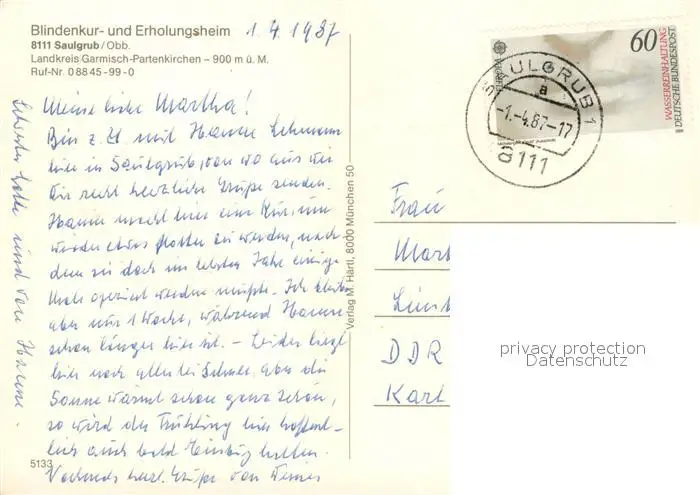 Blindenkur- und Erholungsheim
8111 Saulgrub/Obb.
Landkreis Garmisch-Partenkirchen – 900 m ü. M.
Ruf-Nr. 0 88 45 - 99 - 0
1.4.1987
Meine liebe Martha!
Bin z. Zt mit Hanne Lehmann
hier in Saulgrub, von wo aus wir
Dir recht herzliche Grüße senden.
Hanne macht hier eine Kur, um
wieder etwas flotter zu werden, nach
dem sie doch im letzten Jahr einige
Male operiert werden mußte. Ich bleibe
aber nur 1 Woche, während Hanne
schon länger hier ist. – Leider liegt
hier noch allerlei Schnee, aber die
Sonne wärmt schon ganz schön,
so wird der Frühling hier hoffent-
lich auch bald Einzug halten.
Nochmals herzl. Grüße von Deiner
Schwester und von Hanne.
5133
Verlag M. Härtl, 8000 München 50
EUROPA
60
WASSERREINHALTUNG
DEUTSCHE BUNDESPOST
SAULGRUB 1
a
-1.-4.87-17
8111
Frau
Mart
DDR
Karl
privacy protection
Datenschutz